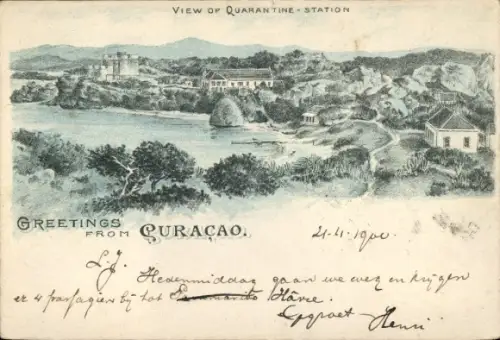 View of Quarantine-Station
Greetings
from Curaçao.
21-4-1900
L.J.
Hedenmiddag gaan we weg en krijgen
er 4 passagiers bij tot Paramaribo Hâvre.
Gegroet Henri